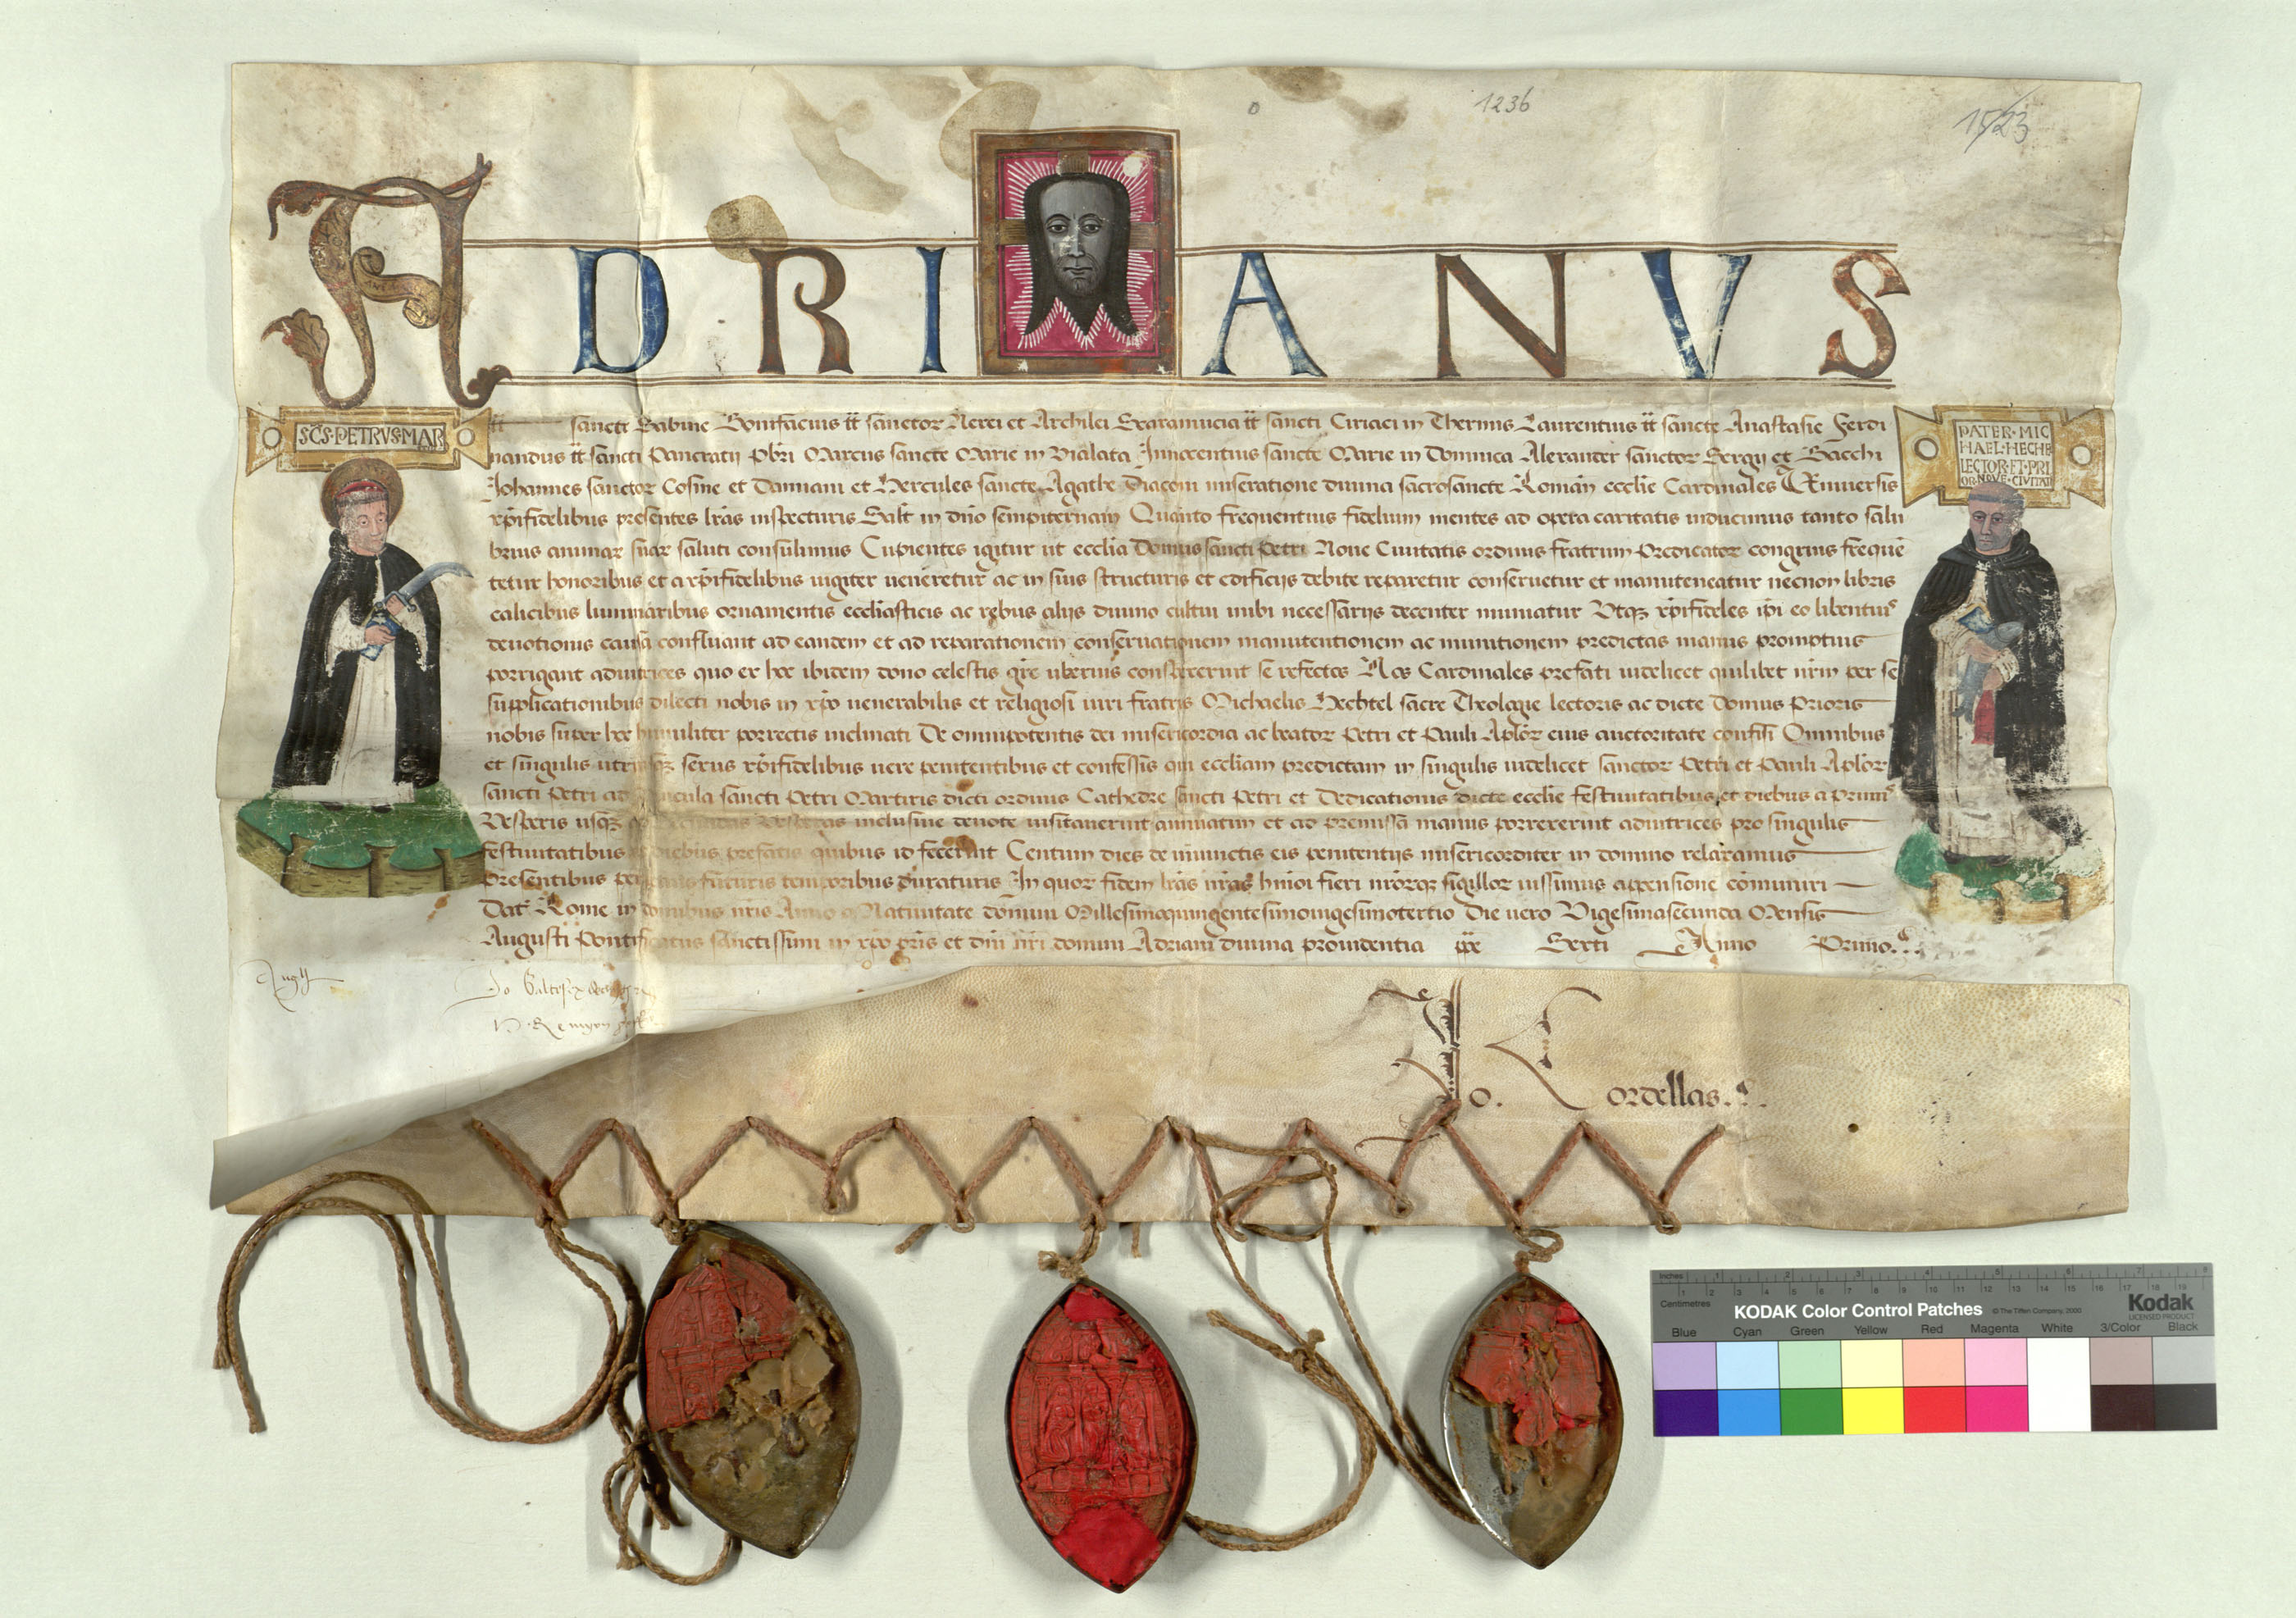 1236
1523
ADRIANVS
SCS·PETRVS·MAR
PATER·MIC
HAEL·HECHE
LECTOR·ET·PRI
OR·NOVE·CIVITAT
tt sancte Sabine Bonifacius tt sanctor Nerei et Archilei Scaramucia tt sancti Ciriaci in Thermis Laurentius tt sancte Anastasie Ferdi
nandus tt sancti Pancratij pbri Marcus sancte Marie in Vialata Innocentius sancte Marie in Dominica Alexander sanctor Sergij et Bacchi
Johannes sanctor Cosme et Damiani et Hercules sancte Agathe Diaconi miseratione divina sacrosancte Roman ecclie Cardinales Universis
xpifidelibus presentes lras inspecturis Salt in dno sempiternam Quanto frequentius fidelium mentes ad opera caritatis inducimus tanto salu
brius animar suar saluti consulimus Cupientes igitur ut ecclia Domus sancti Petri Nove Civitatis ordinis fratrum Predicator congruis freque
tetur honoribus et a xpifidelibus iugiter veneretur ac in suis structuris et edificijs debite reparetur conservetur et manuteneatur necnon libris
calicibus luminaribus ornamentis ecclasticis ac rebus alijs divino cultui inibi necessarijs decenter muniatur Utqz xpifideles ipi eo libentius
devotionis causa confluant ad eandem et ad reparationem conservationem manutentionem ac munitionem predictas manus promptius
porrigant adiutrices quo ex hoc ibidem dono celestis gre uberius conspexerint se refectos Nos Cardinales prefati videlicet quilibet nrm per se
supplicationibus dilecti nobis in xpo venerabilis et religiosi viri fratris Michaelis Hechtel sacre Theologie lectoris ac dicte Domus Prioris
nobis super hoc humiliter porrectis inclinati De omnipotentis dei misericordia ac beator Petri et Pauli Aplor eius auctoritate confisi Omnibus
et singulis utriusqz sexus xpifidelibus vere penitentibus et confessis qui eccliam predictam in singulis videlicet sanctor Petri et Pauli Aplor
sancti Petri ad vincula sancti Petri Martiris dicti ordinis Cathedre sancti Petri et Dedicationis dicte ecclie festivitatibus et diebus a primis
Vesperis usqz ad secundas Vesperas inclusive devote visitaverint annuatim et ad premissa manus porrexerint adiutrices pro singulis
festivitatibus et diebus prefatis quibus id fecerint Centum dies de iniunctis eis penitentijs misericorditer in domino relaxamus
Presentibus perpetuis futuris temporibus duraturis In quor fidem lras nras hmoi fieri nrorqz sigillor iussimus appensione comuniri
Dat Rome in domibus nris Anno a Nativitate domini Millesimoquingentesimovigesimotertio Die vero Vigesimasecunda Mensis
Augusti Pontificatus sanctissimi in xpo pris et dni nri domini Adriani divina providentia ppe Sexti Anno Primo
Jo. Cordellas.
Inches
Centimetres
KODAK Color Control Patches
© The Tiffen Company, 2000
Kodak
LICENSED PRODUCT
Blue Cyan Green Yellow Red Magenta White 3/Color Black